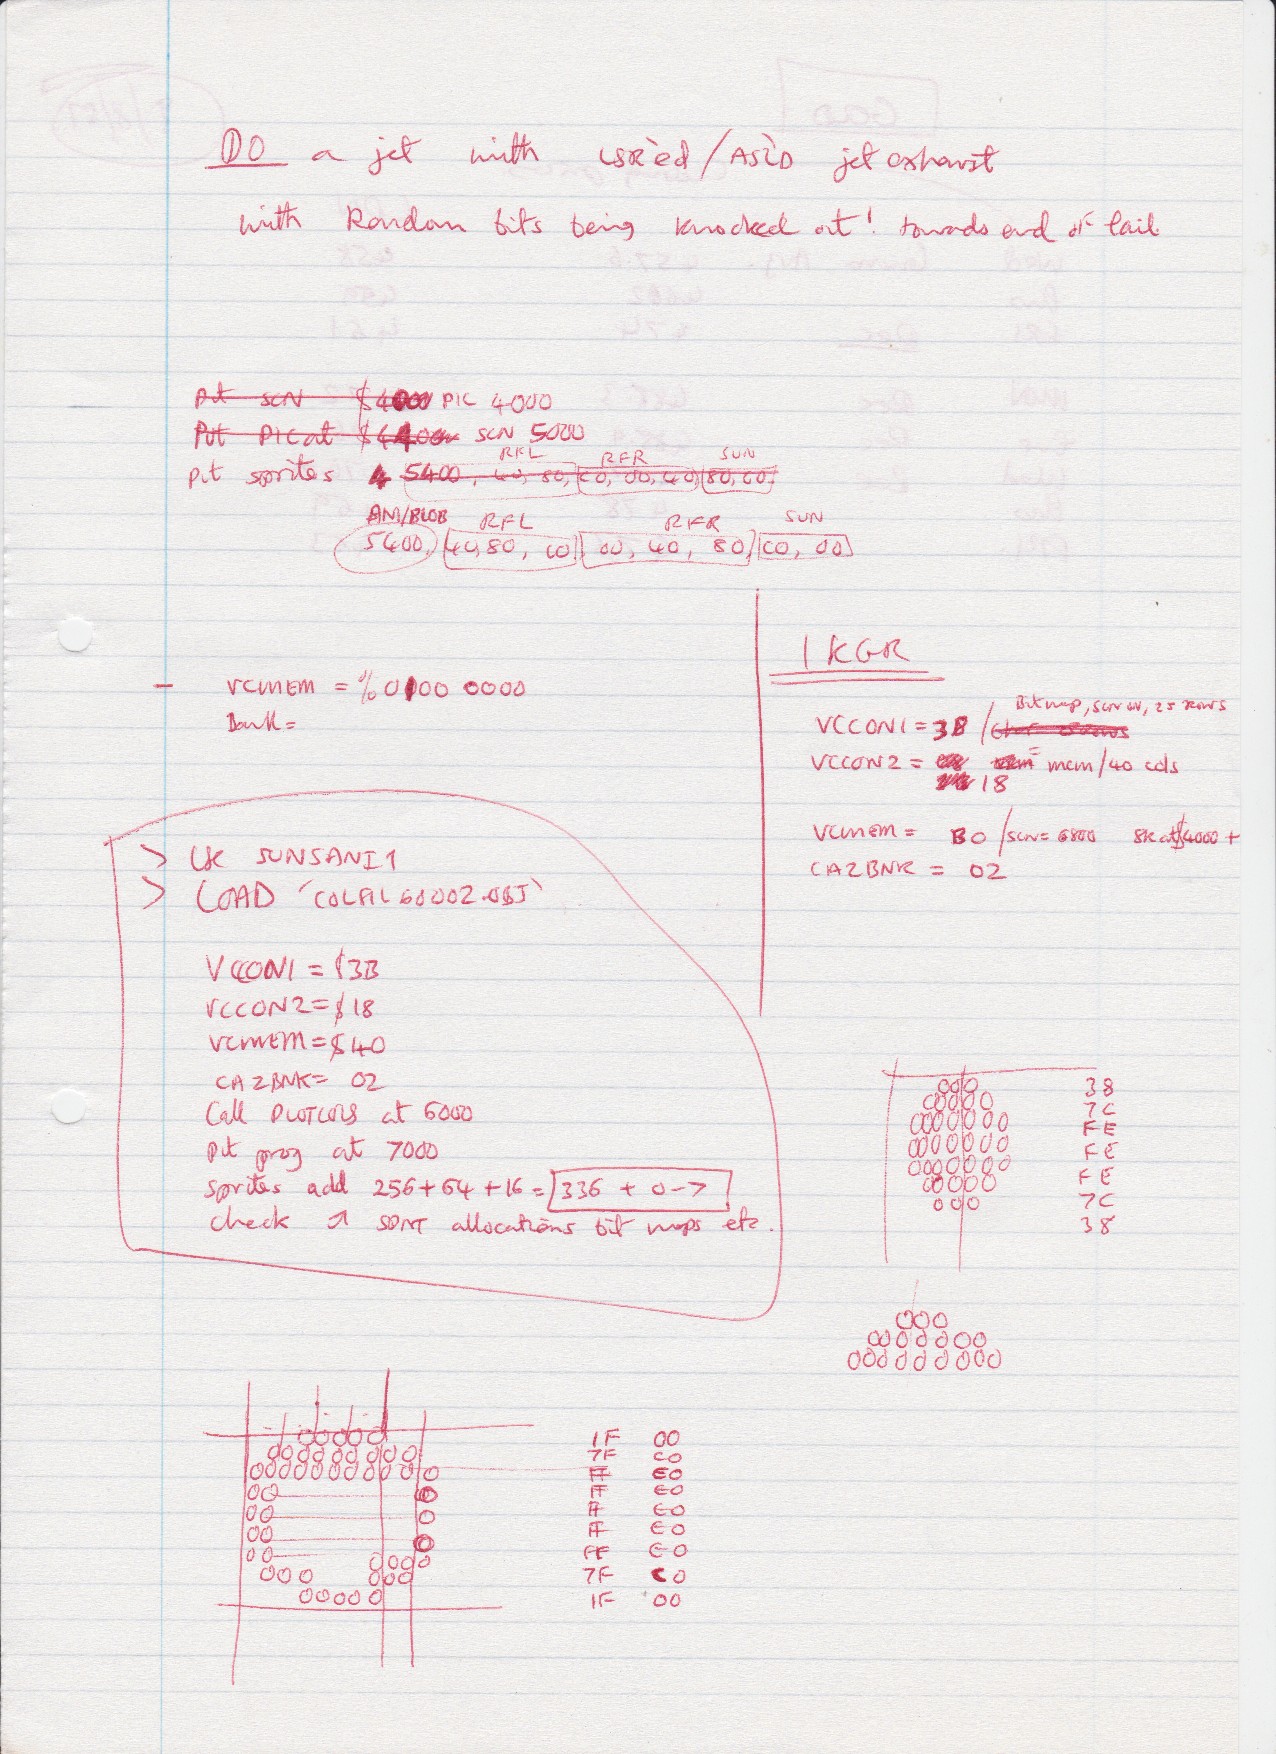 DO a jet with LSR'ed/ASL'D jet exhaust
with Random bits being knocked out! towards end of tail
Put SCN $4000 PIC 4000
Put PIC at $4400 SCN 5000
RFL RFR SUN
put sprites 5400, 40, 80, C0, 00, 40, 80, C0,
ANI/BLOB RFL RFR SUN
5400, 40, 80, C0 00, 40, 80, C0, 00
- VCMEM = %0100 0000
Bank =
1 KGR
Bitmap, scrn on, 25 rows
VCCON1 = 3B /
VCCON2 = mcm/40 cols
18
VCMEM = B0 /SCN = 6800 8K at $4000 +
CA2BNK = 02
> LK SUNSANI1
> LOAD 'COLFIL60002.OBJ'
VCCON1 = $3B
VCCON2 = $18
VCMEM = $40
CA2BNK = 02
Call PLOTCOLS at 6000
Put prog at 7000
sprites add 256+64+16 = 336 + 0->7
check SPNT allocations bit maps etc.
38
7C
FE
FE
FE
7C
38
1F 00
7F C0
FF E0
FF E0
FF E0
FF E0
FF E0
7F C0
1F 00